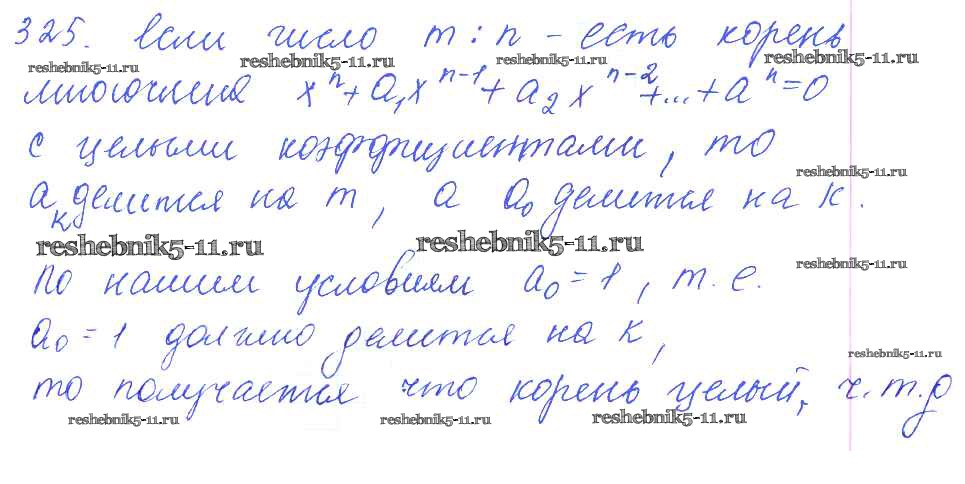 325. Если число m : n - есть корень
reshebnik5-11.ru reshebnik5-11.ru reshebnik5-11.ru reshebnik5-11.ru
многочлена xⁿ + a₁xⁿ⁻¹ + a₂xⁿ⁻² + ... + aⁿ = 0
с целыми коэффициентами, то
reshebnik5-11.ru
aₖ делится на m, а a₀ делится на k.
reshebnik5-11.ru reshebnik5-11.ru
reshebnik5-11.ru
по нашим условиям a₀ = 1, т. е.
a₀ = 1 должно делится на k,
reshebnik5-11.ru
то получается что корень целый, ч.т.д
reshebnik5-11.ru reshebnik5-11.ru reshebnik5-11.ru